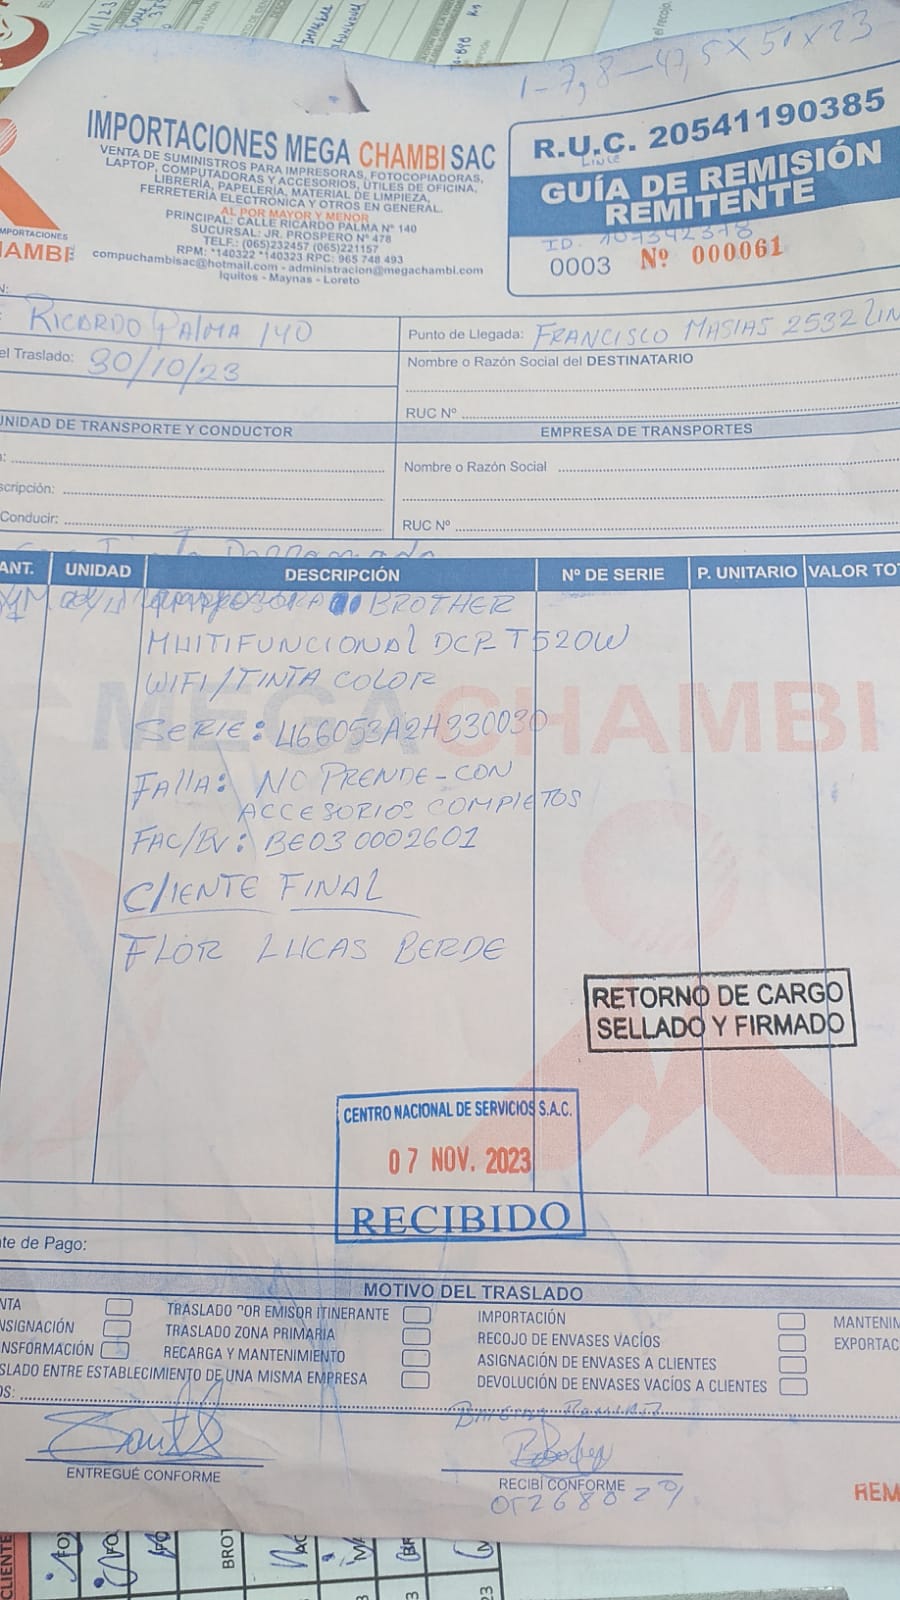 1-7,8-47,5x51x23
IMPORTACIONES MEGA CHAMBI SAC
VENTA DE SUMINISTROS PARA IMPRESORAS, FOTOCOPIADORAS,
LAPTOP, COMPUTADORAS Y ACCESORIOS, ÚTILES DE OFICINA,
LIBRERÍA, PAPELERÍA, MATERIAL DE LIMPIEZA,
FERRETERÍA ELECTRÓNICA Y OTROS EN GENERAL.
AL POR MAYOR Y MENOR
PRINCIPAL: CALLE RICARDO PALMA Nº 140
SUCURSAL: JR. PROSPERO Nº 478
TELF.: (065)232457 (065)221157
RPM: *140322 *140323 RPC: 965 748 493
compuchambisac@hotmail.com - administracion@megachambi.com
Iquitos - Maynas - Loreto
IMPORTACIONES
HAMBI
R.U.C. 20541190385
GUÍA DE REMISIÓN
REMITENTE
0003 Nº 000061
RICARDO PALMA 140
Punto de Llegada: FRANCISCO MASIAS 2532 LIN
el Traslado: 30/10/23
Nombre o Razón Social del DESTINATARIO
RUC Nº
UNIDAD DE TRANSPORTE Y CONDUCTOR
EMPRESA DE TRANSPORTES
Nombre o Razón Social
scripción:
Conducir:
RUC Nº
ANT. UNIDAD DESCRIPCIÓN Nº DE SERIE P. UNITARIO VALOR TOT
BROTHER
MULTIFUNCIONAL DCP-T520W
WIFI/TINTA COLOR
MEGACHAMBI
SERIE: U66053A2H330030
FALLA: NO PRENDE-CON
ACCESORIOS COMPLETOS
FAC/BV: BE03 0002601
CLIENTE FINAL
FLOR LUCAS BERDE
RETORNO DE CARGO
SELLADO Y FIRMADO
CENTRO NACIONAL DE SERVICIOS S.A.C.
07 NOV. 2023
RECIBIDO
te de Pago:
MOTIVO DEL TRASLADO
NTA
NSIGNACIÓN
NSFORMACIÓN
SLADO ENTRE ESTABLECIMIENTO DE UNA MISMA EMPRESA
OS:
TRASLADO POR EMISOR ITINERANTE
TRASLADO ZONA PRIMARIA
RECARGA Y MANTENIMIENTO
IMPORTACIÓN
RECOJO DE ENVASES VACÍOS
ASIGNACIÓN DE ENVASES A CLIENTES
DEVOLUCIÓN DE ENVASES VACÍOS A CLIENTES
MANTENIM
EXPORTAC
ENTREGUÉ CONFORME
RECIBÍ CONFORME
REM
CLIENTE
BROT